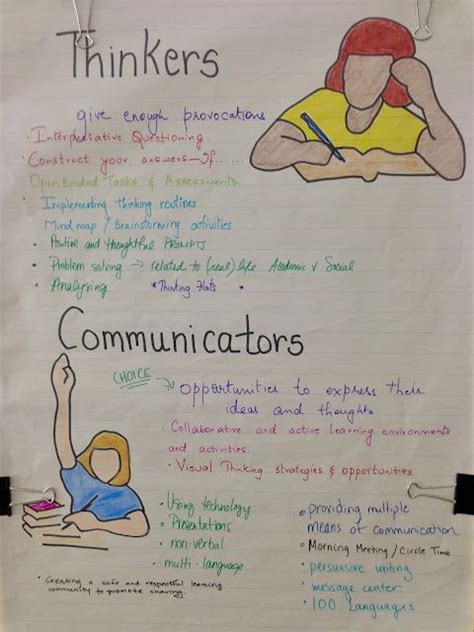 Thinkers
give enough provocations
• Interpretative Questioning
• Construct your answers — If......
Open Ended Tasks & Assessments.
Implementing thinking routines
Mind map / Brainstorming activities
• Positive and thoughtful PROMPTS
• Problem solving → related to (real) life Academic & Social
• Analysing *Thinking Hats •
Communicators
CHOICE → opportunities to express their
ideas and thoughts
• Collaborative and active learning environments
and activities.
• Visual Thinking strategies & opportunities
• Using technology
• Presentations
• non-verbal
• multi-language
• Creating a safe and respectful learning
community to promote sharing.
• providing multiple
means of communication
• Morning Meeting / Circle Time
• persuasive writing
• message center
• 100 Languages